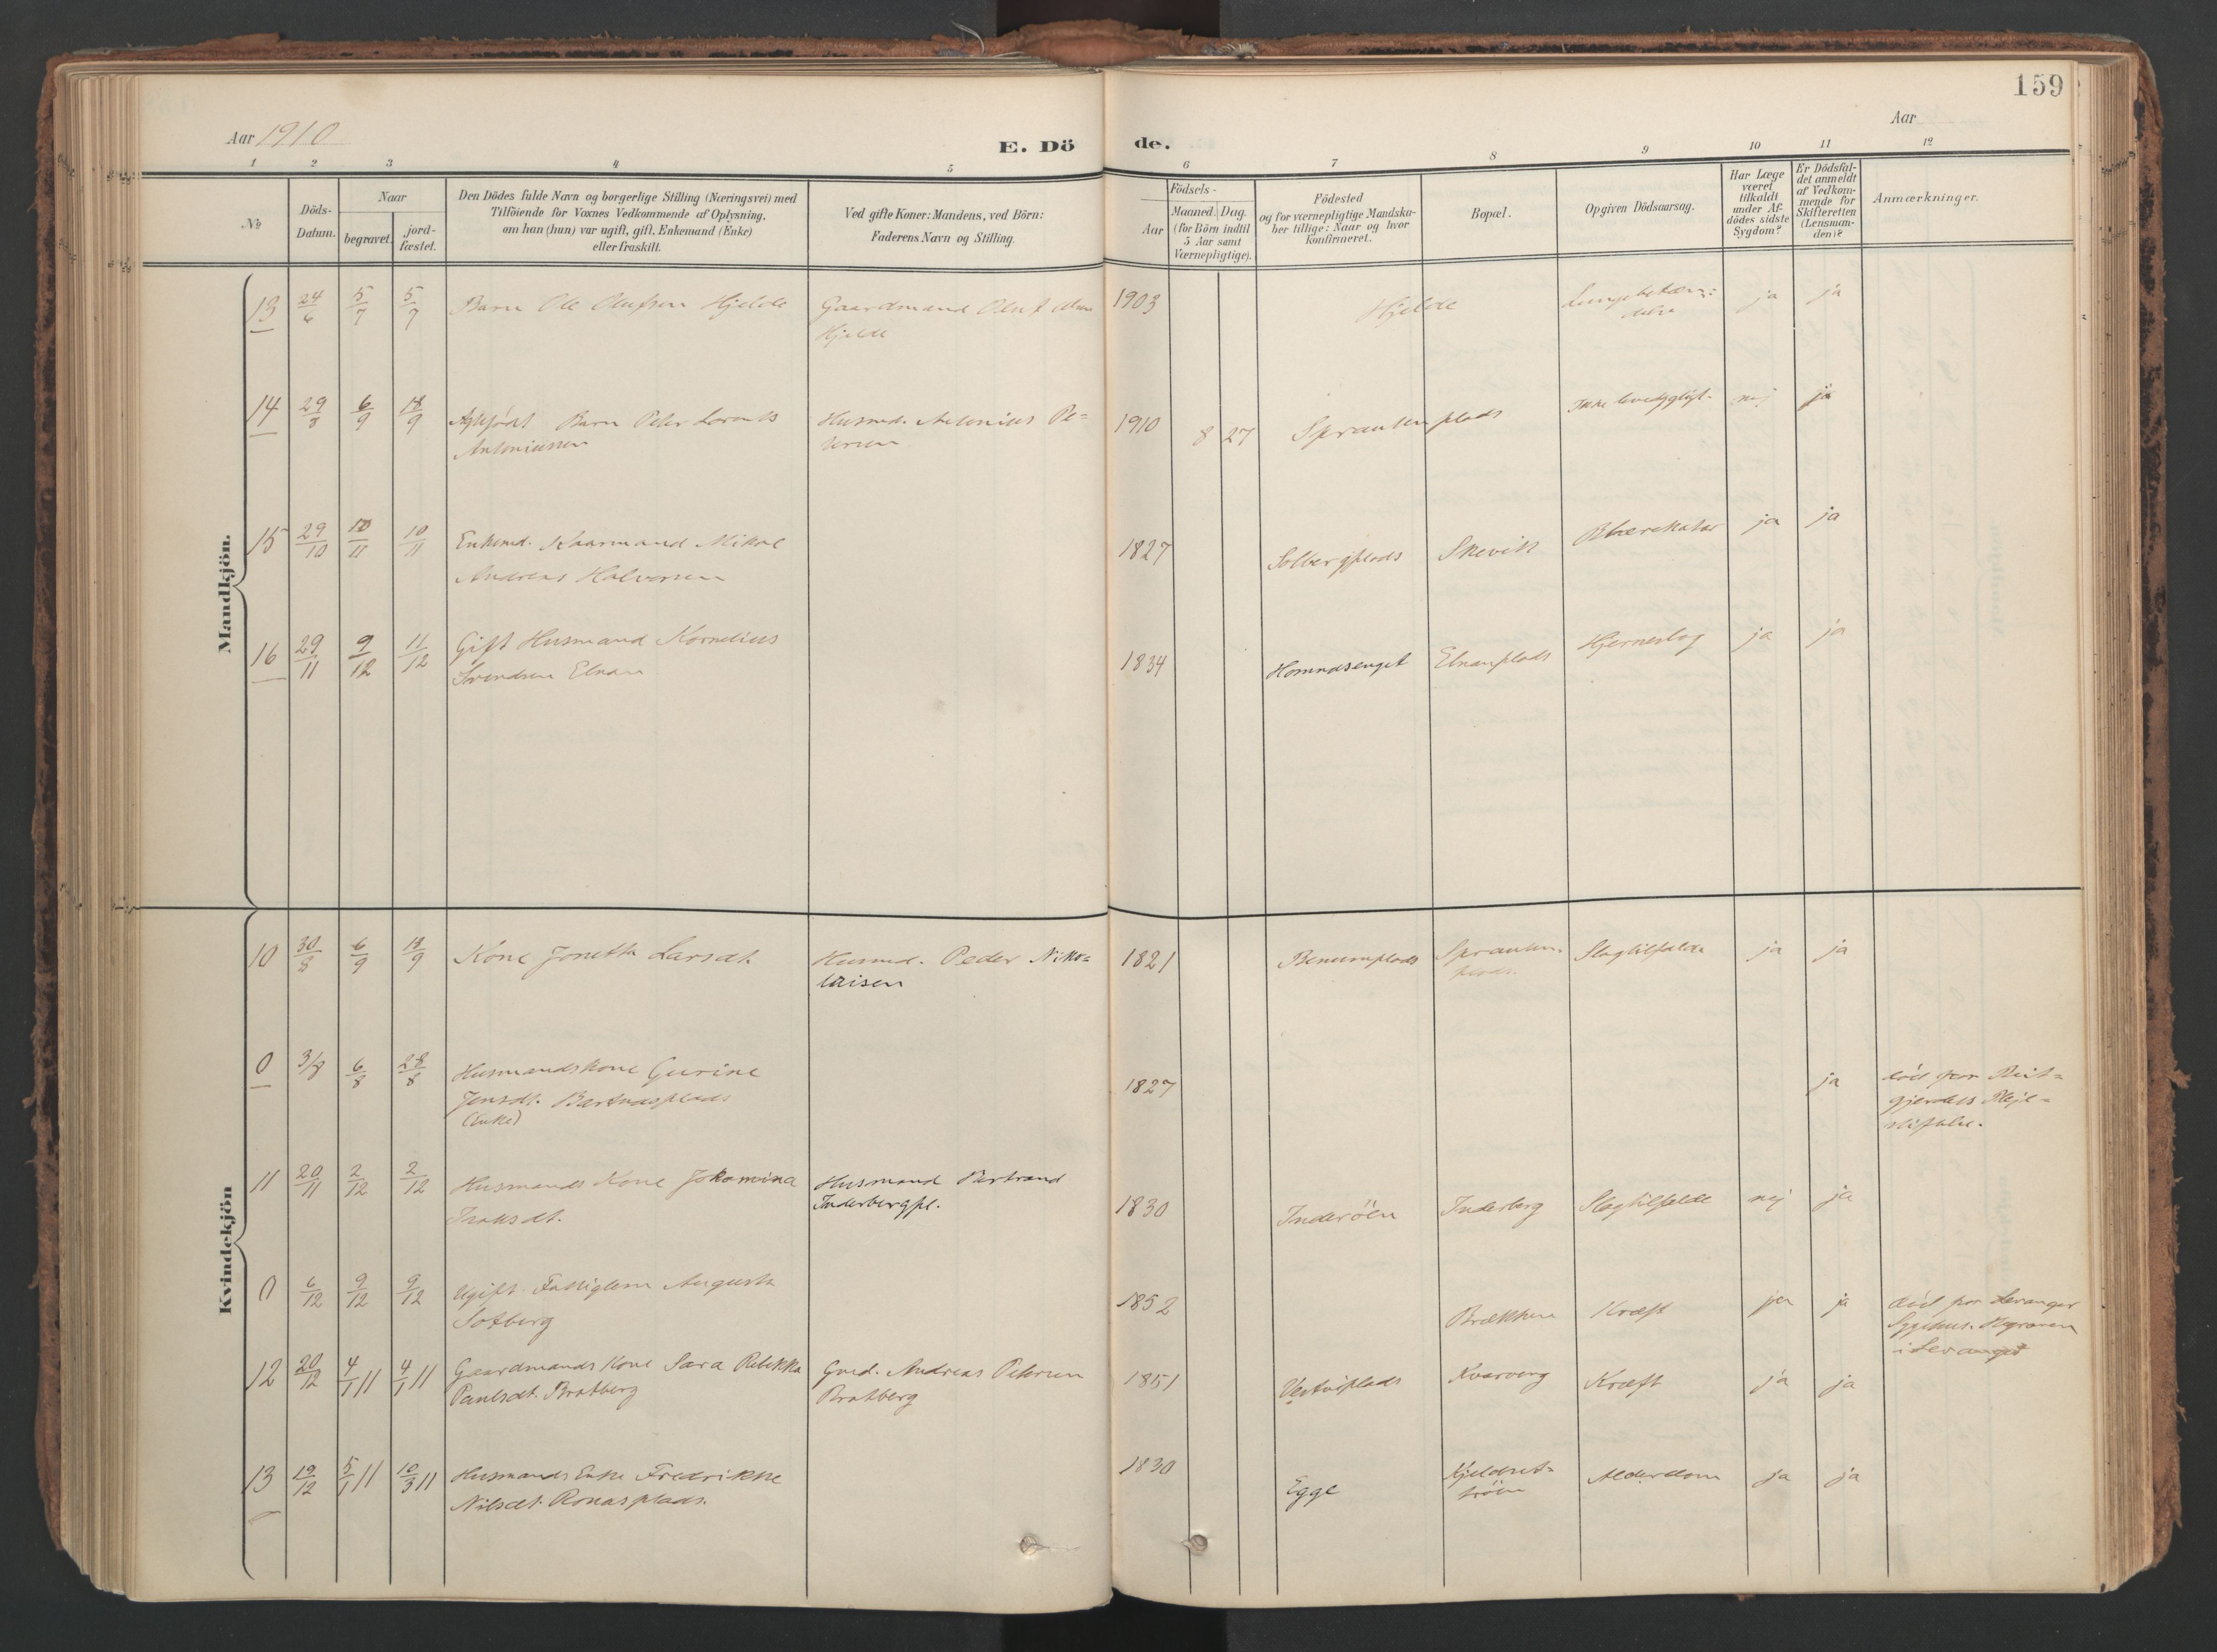 159
Aar 1910
E. Dö de.
Aar
1 2 3 4 5 6 7 8 9 10 11 12
No
Döds-
Datum.
Naar
begravet.
jord-
fæstet.
Den Dödes fulde Navn og borgerlige Stilling (Næringsvei) med
Tilföiende for Voxnes Vedkommende af Oplysning,
om han (hun) var ugift, gift, Enkemand (Enke)
eller fraskilt.
Ved gifte Koner: Mandens, ved Börn:
Faderens Navn og Stilling.
Födsels-
Aar
Maaned. Dag.
(for Börn indtil
5 Aar samt
Værnepligtige).
Födested
og for værnepligtige Mandska-
ber tillige: Naar og hvor
konfirmeret.
Bopæl.
Opgiven Dödsaarsag.
Har Læge
været
tilkaldt
under Af-
dödes sidste
Sygdom?
Er Dödsfal-
det anmeldt
af Vedkom-
mende for
Skifteretten
(Lensman-
den)?
Anmærkninger.
Mandkjön.
13 24/6 5/7 5/7 Barn Ole Olufsen Hjelde Gaardmand Oluf 1903 Hjelde Lungebetæn- ja ja
Hjelde delse
14 29/8 6/9 18/9 Ægtefødt Barn Peter Lorents Husmd. Antonius Pe= 1910 8 27 Sprautenplads Ikke levedygtigt. nej ja
Antoniussen tersen
15 29/10 10/11 10/11 Enkemd. Kaarmand Mikal 1827 Solbergplads Skevik Blærekatar ja ja
Andreas Halvorsen
16 29/11 9/12 11/12 Gift Husmand Kornelius 1834 Homnesenget Elnanplads Hjerneslag ja ja
Svendsen Elnan
Kvindekjön
10 30/8 6/9 18/9 Kone Jonetta Larsdt. Husmd. Peder Niko= 1821 Benumplads Sprauten- Slagtilfælde ja ja
laisen plads.
0 3/8 6/8 28/8 Husmandskone Gurine 1827 ja död paa Reit=
Jensdt. Bartnesplads gjerdets Pleje=
(Enke) stiftelse.
11 20/11 2/12 2/12 Husmands Kone Jokomina Husmand Bertrand 1830 Inderöen Inderberg Slagtilfælde nej ja
Isaksdt. Inderbergpl.
0 6/12 9/12 9/12 Ugift Fattiglem Augusta 1852 Brækken Kræft ja ja död paa Levanger
Solberg Sygehus. Begraven
i Levanger
12 20/12 4/1 11 4/1 11 Gaardmands Kone Sara Rebekka Gmd. Andreas Petersen 1851 Vestviplads Kvarveng Kræft ja ja
Paulsdt. Bratberg Bratberg
13 19/12 5/1 11 10/3 11 Husmands Enke Fredrikke 1830 Egge Kjeldset= Alderdom ja ja
Nilsdt. Ronasplads. tröen